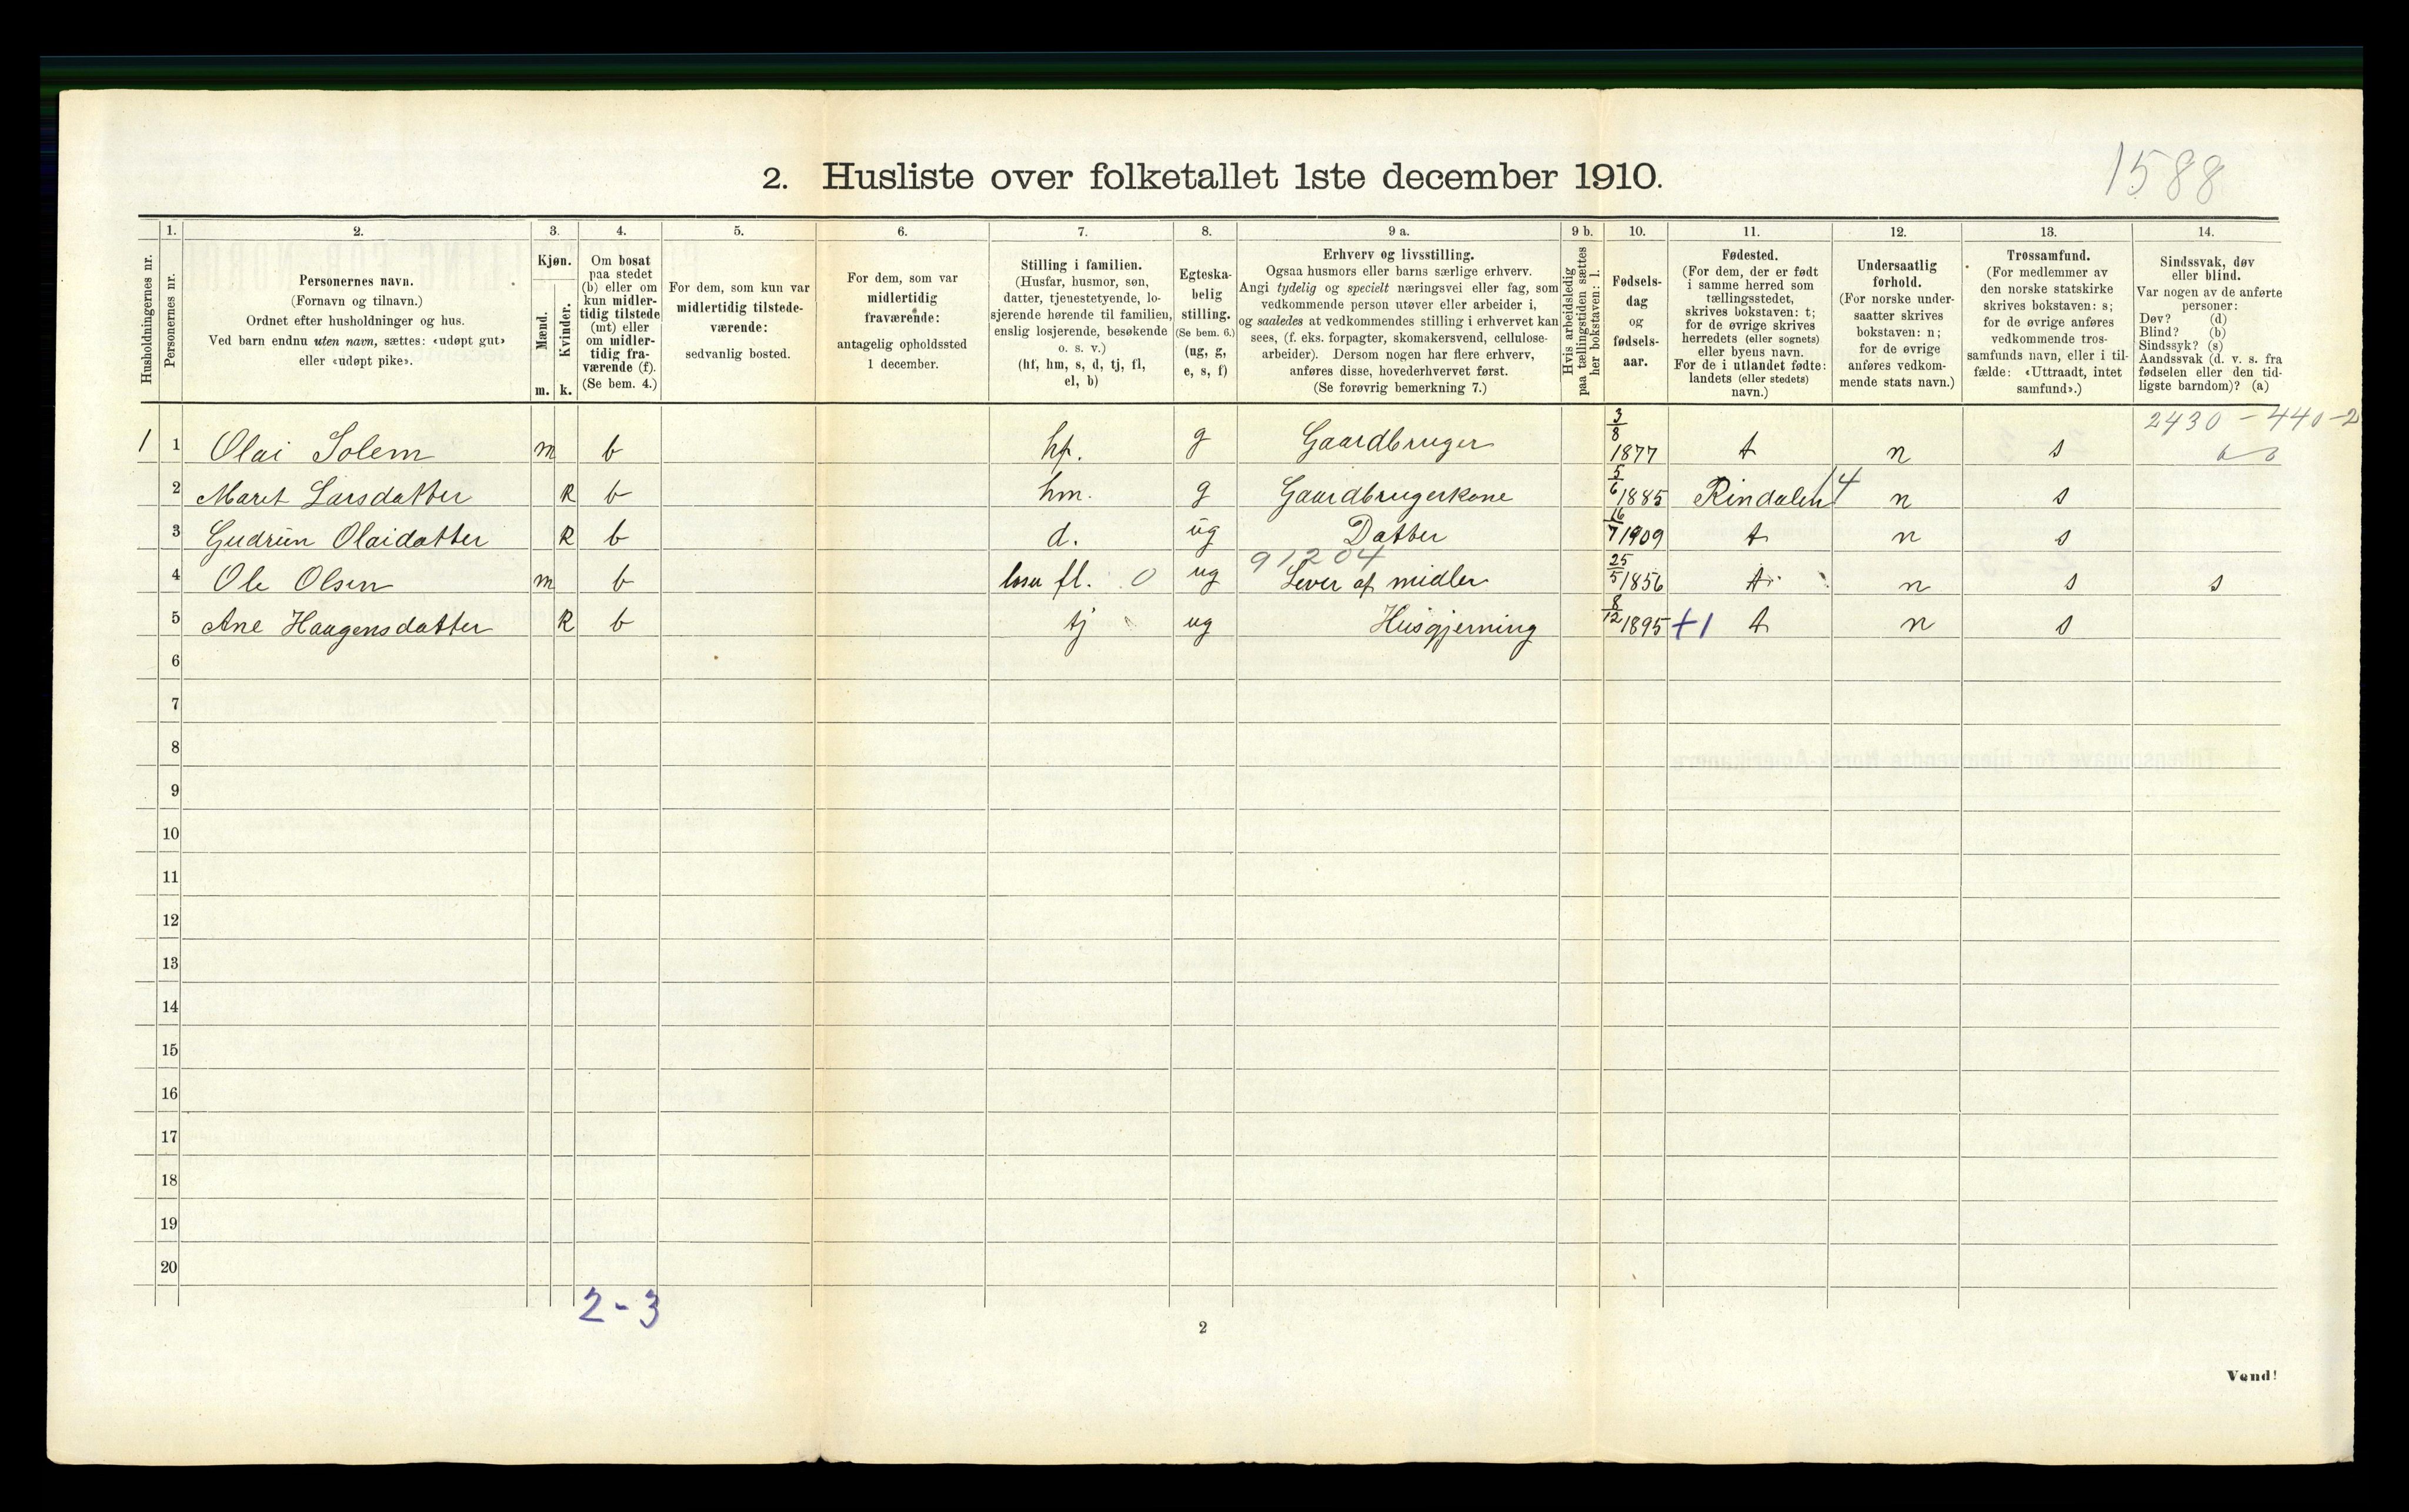 1588
2. Husliste over folketallet 1ste december 1910.
Husholdningernes nr.
1.
Personernes nr.
2.
Personernes navn.
(Fornavn og tilnavn.)
Ordnet efter husholdninger og hus.
Ved barn endnu uten navn, sættes: «udøpt gut»
eller «udøpt pike».
3.
Kjøn.
Mænd.
Kvinder.
m. k.
4.
Om bosat
paa stedet
(b) eller om
kun midler-
tidig tilstede
(mt) eller
om midler-
tidig fra-
værende (f).
(Se bem. 4.)
5.
For dem, som kun var
midlertidig tilstede-
værende:
sedvanlig bosted.
6.
For dem, som var
midlertidig
fraværende:
antagelig opholdssted
1 december.
7.
Stilling i familien.
(Husfar, husmor, søn,
datter, tjenestetyende, lo-
sjerende hørende til familien,
enslig losjerende, besøkende
o. s. v.)
(hf, hm, s, d, tj, fl,
el, b)
8.
Egteska-
belig
stilling.
(Se bem. 6.)
(ug, g,
e, s, f)
9 a.
Erhverv og livsstilling.
Ogsaa husmors eller barns særlige erhverv.
Angi tydelig og specielt næringsvei eller fag, som
vedkommende person utøver eller arbeider i,
og saaledes at vedkommendes stilling i erhvervet kan
sees, (f. eks. forpagter, skomakersvend, cellulose-
arbeider). Dersom nogen har flere erhverv,
anføres disse, hovederhvervet først.
(Se forøvrig bemerkning 7.)
9 b.
Hvis arbeidsledig
paa tællingstiden sættes
her bokstaven: l.
10.
Fødsels-
dag
og
fødsels-
aar.
11.
Fødested.
(For dem, der er født
i samme herred som
tællingsstedet,
skrives bokstaven: t;
for de øvrige skrives
herredets (eller sognets)
eller byens navn.
For de i utlandet fødte:
landets (eller stedets)
navn.)
12.
Undersaatlig
forhold.
(For norske under-
saatter skrives
bokstaven: n;
for de øvrige
anføres vedkom-
mende stats navn.)
13.
Trossamfund.
(For medlemmer av
den norske statskirke
skrives bokstaven: s;
for de øvrige anføres
vedkommende tros-
samfunds navn, eller i til-
fælde: «Uttraadt, intet
samfund».)
14.
Sindssvak, døv
eller blind.
Var nogen av de anførte
personer:
Døv? (d)
Blind? (b)
Sindssyk? (s)
Aandssvak (d. v. s. fra
fødselen eller den tid-
ligste barndom)? (a)
2430 - 440-2
1 1 Olai Solem m b hf. g Gaardbruger 3/8 1877 t n s
2 Maret Larsdatter k b hm. g Gaardbrugerkone 5/6 1885 Rindalen 14 n s
3 Gudrün Olaidatter k b d. üg Datter 16/7 1909 t n s
91204
4 Ole Olsen m b fl. 0 ug Lever af midler 25/5 1856 t n s s
5 Ane Haagensdatter k b tj ug Husgjerning 8/12 1895 +1 t n s
6
7
8
9
10
11
12
13
14
15
16
17
18
19
20
2-3
2
Vend!